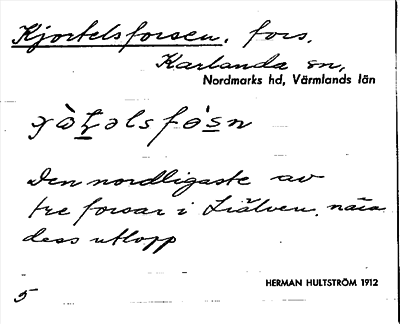 Kjortelsforsen, fors,
Karlanda sn,
Nordmarks hd, Värmlands län
Den nordligaste av
tre forsar i Liälven, nära
dess utlopp
5
HERMAN HULTSTRÖM 1912